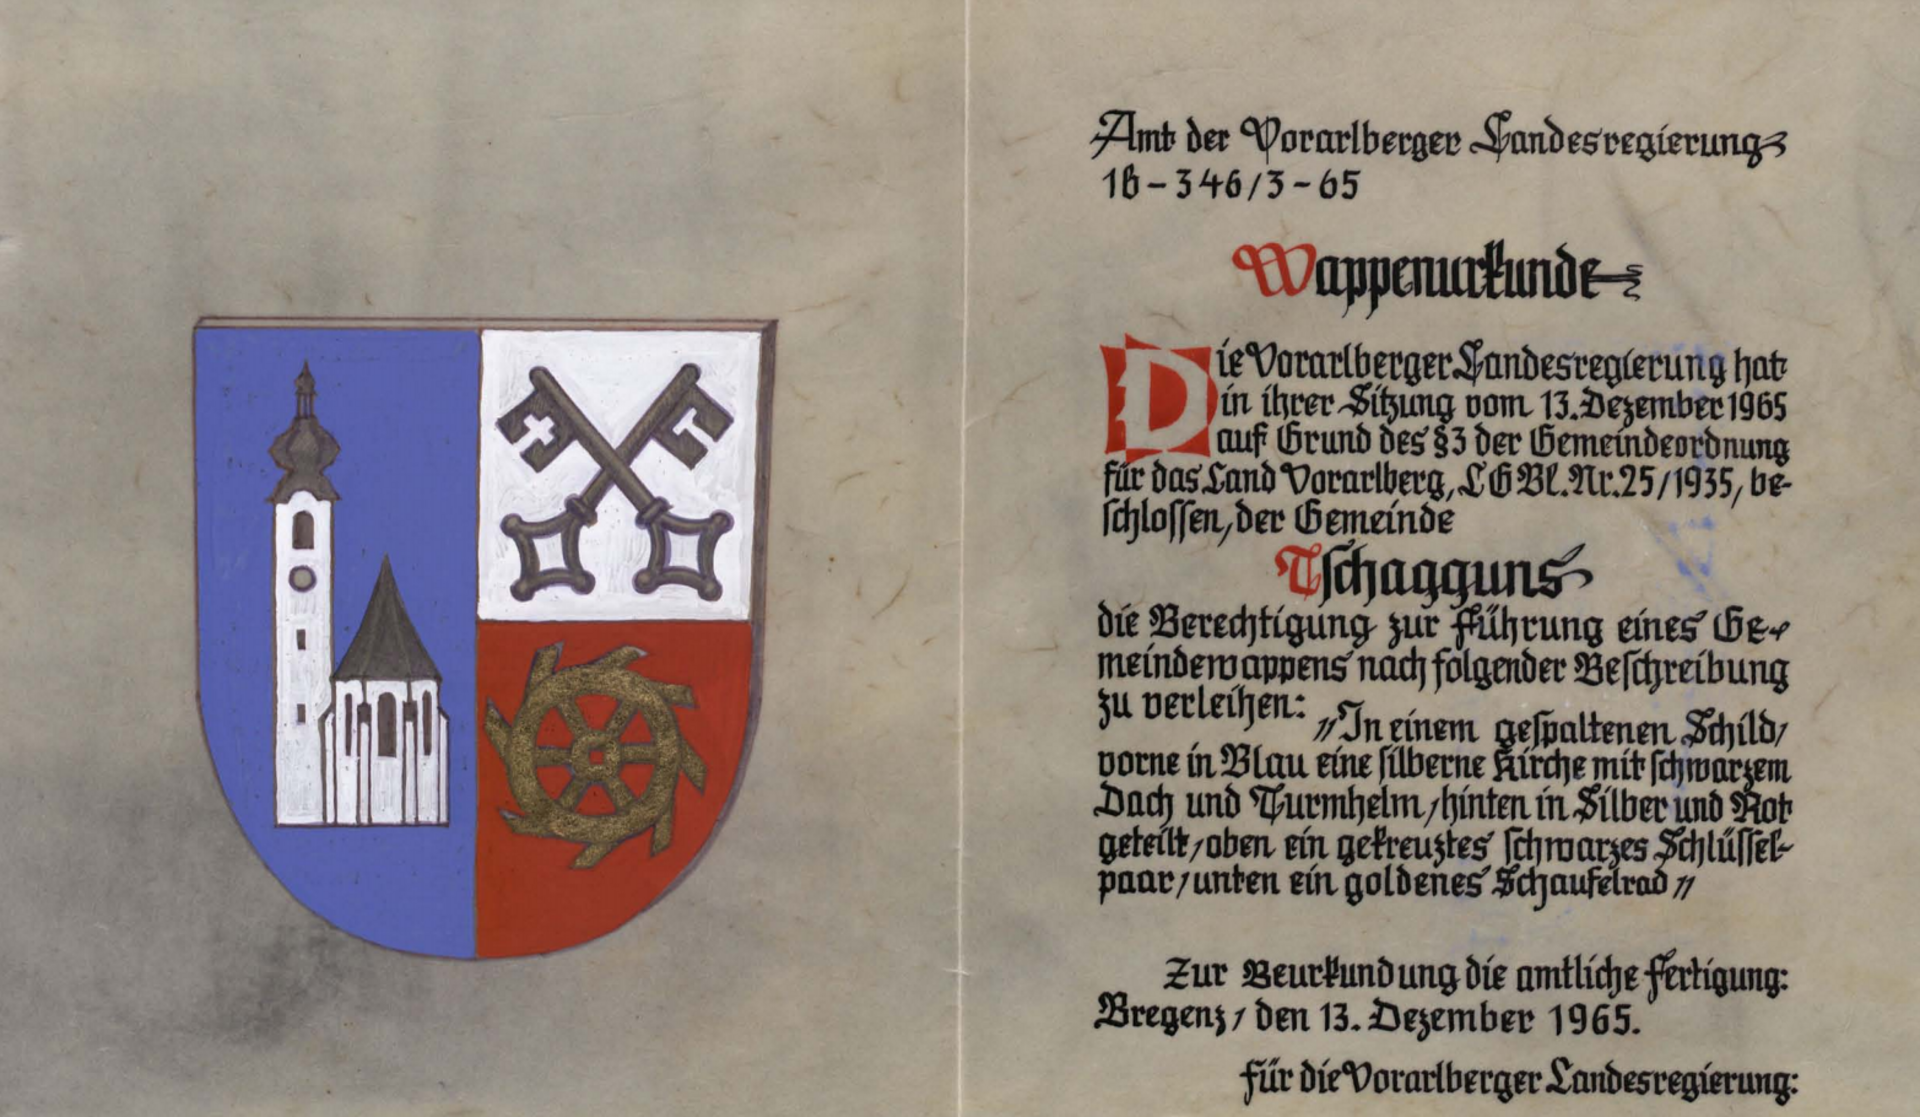 Amt der Vorarlberger Landesregierung
Ib - 346/3 - 65
Wappenurkunde
Die Vorarlberger Landesregierung hat
in ihrer Sitzung vom 13. Dezember 1965
auf Grund des §3 der Gemeindeordnung
für das Land Vorarlberg, LGBl. Nr. 25/1935, be-
schlossen, der Gemeinde
Tschagguns
die Berechtigung zur Führung eines Ge-
meindewappens nach folgender Beschreibung
zu verleihen: „In einem gespaltenen Schild,
vorne in Blau eine silberne Kirche mit schwarzem
Dach und Turmhelm, hinten in Silber und Rot
geteilt, oben ein gekreuztes schwarzes Schlüssel-
paar, unten ein goldenes Schaufelrad"
Zur Beurkundung die amtliche Fertigung:
Bregenz, den 13. Dezember 1965.
Für die Vorarlberger Landesregierung: